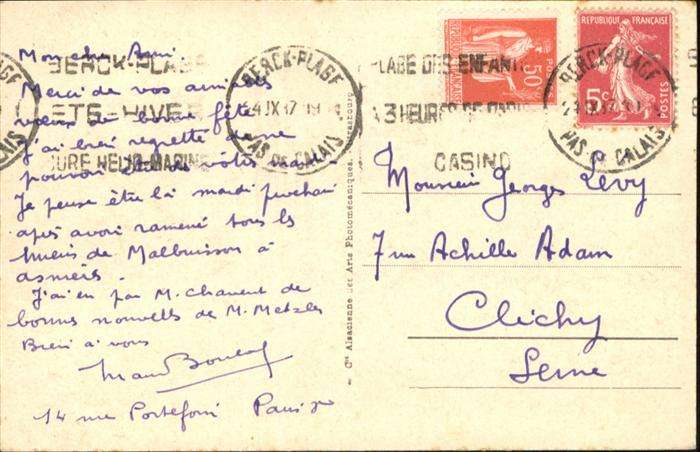 Mon cher Ami
Merci de vos amicales
vœux de bonne fête
j'ai bien regretté de ne
pouvoir
Je pense être là mardi prochain
après avoir ramené tous les
miens de Malbuisson à
Asnières.
J'ai eu par M. Chauvent de
bonnes nouvelles de M. Metzler
Bien à vous
14 rue Portefoin Paris 3e
Cie Alsacienne des Arts Photomécaniques, Strasbourg
BERCK-PLAGE
ÉTÉ-HIVER
CURE HELIO-MARINE
BERCK-PLAGE
24 IX 37
PAS DE CALAIS
PLAGE DES ENFANTS
A 3 HEURES DE PARIS
CASINO
BERCK-PLAGE
PAS DE CALAIS
50c
RÉPUBLIQUE FRANÇAISE
5c
POSTES
Monsieur Georges Levy
7 rue Achille Adam
Clichy
Seine